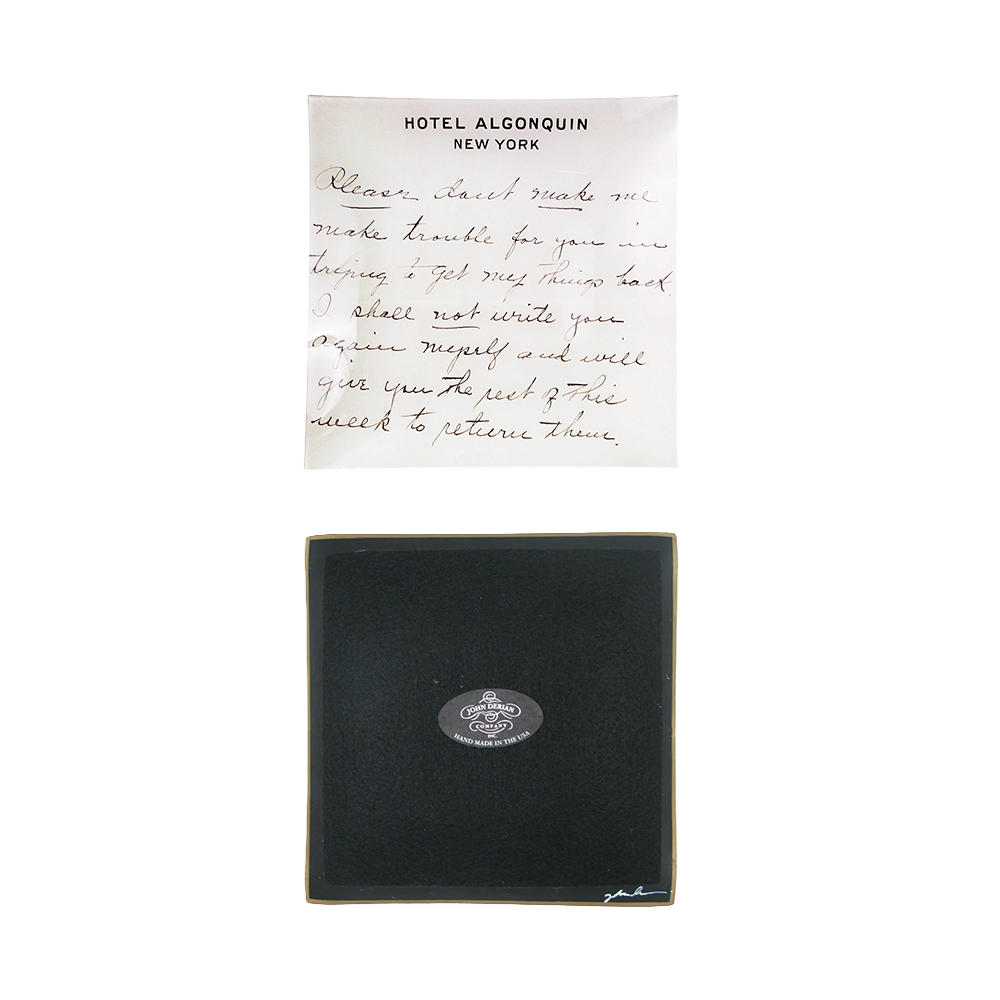 HOTEL ALGONQUIN
NEW YORK
Please don't make me
make trouble for you in
trying to get my things back.
I shall not write you
again myself and will
give you the rest of this
week to return them.
JOHN DERIAN
COMPANY
INC.
HAND MADE IN THE USA